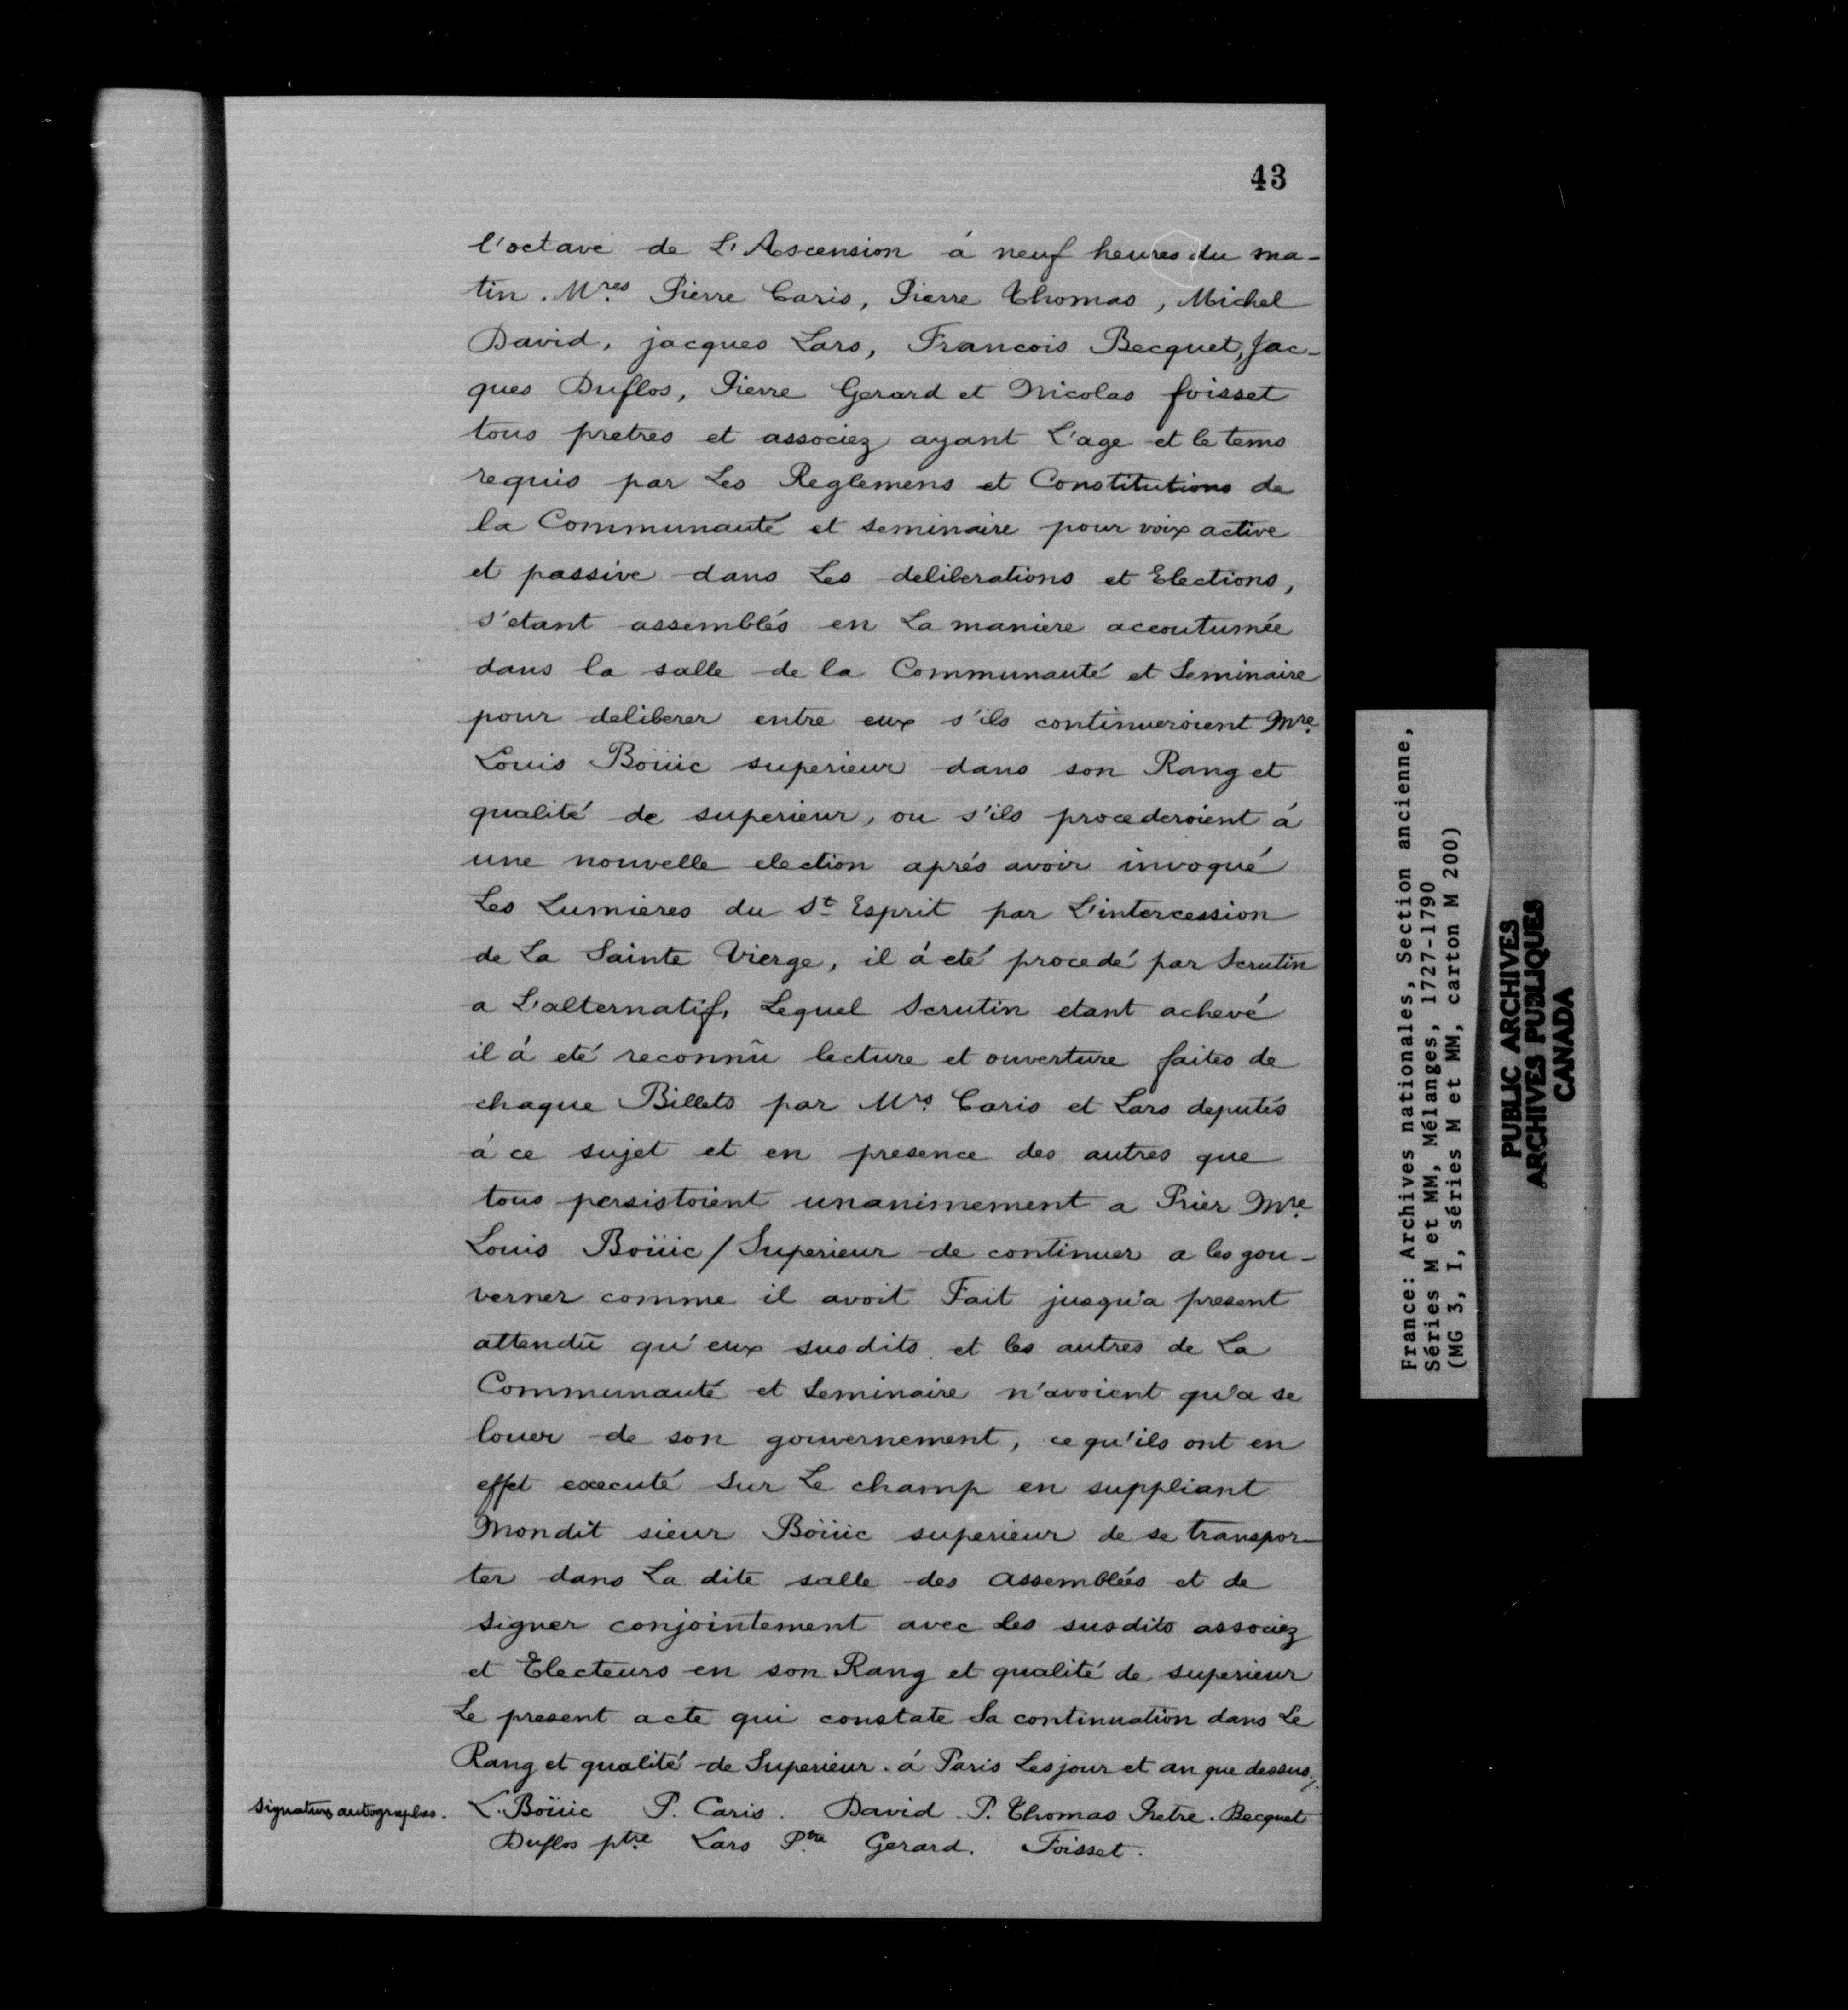 43
l'octave de L'Ascension á neuf heures du ma-
tin. Mres Pierre Caris, Pierre Thomas, Michel
David, jacques Lars, Francois Becquet, Jac-
ques Duflos, Pierre Gerard et Nicolas foisset
tous pretres et associez ayant L'age et le tems
requis par Les Reglemens et Constitutions de
la Communauté et seminaire pour voix active
et passive dans Les deliberations et Elections,
s'etant assemblés en La maniere accoutumée
dans la salle de la Communauté et Seminaire
pour deliberer entre eux s'ils continueroient Mre
Louis Boüic superieur dans son Rang et
qualité de superieur, ou s'ils procederoient á
une nouvelle election aprés avoir invoqué
Les Lumieres du St Esprit par L'intercession
de La Sainte Vierge, il á eté procedé par Scrutin
a L'alternatif, Lequel Scrutin etant achevé
il á eté reconnû lecture et ouverture faites de
chaque Billets par Mrs Caris et Lars deputés
á ce sujet et en presence des autres que
tous persistoient unanimement a Prier Mre
Louis Boüic / Superieur de continuer a les gou-
verner comme il avoit Fait jusqu'a present
attendû qu'eux susdits et les autres de La
Communauté et Seminaire n'avoient qu'a se
louer de son gouvernement, ce qu'ils ont en
effet executé sur Le champ en suppliant
Mondit sieur Boüic superieur de se transpor-
ter dans La dite salle des assemblées et de
signer conjointement avec les susdits associez
et Electeurs en son Rang et qualité de superieur
Le present acte qui constate Sa continuation dans Le
Rang et qualité de Superieur. á Paris Les jour et an que dessus./.
Signatures autographes. L. Boüic P. Caris. David P. Thomas Pretre. Becquet
Duflos ptre Lars Ptre Gerard. Foisset.
France: Archives nationales, Section ancienne,
Séries M et MM, Mélanges, 1727-1790
(MG 3, I, séries M et MM, carton M 200)
PUBLIC ARCHIVES
ARCHIVES PUBLIQUES
CANADA